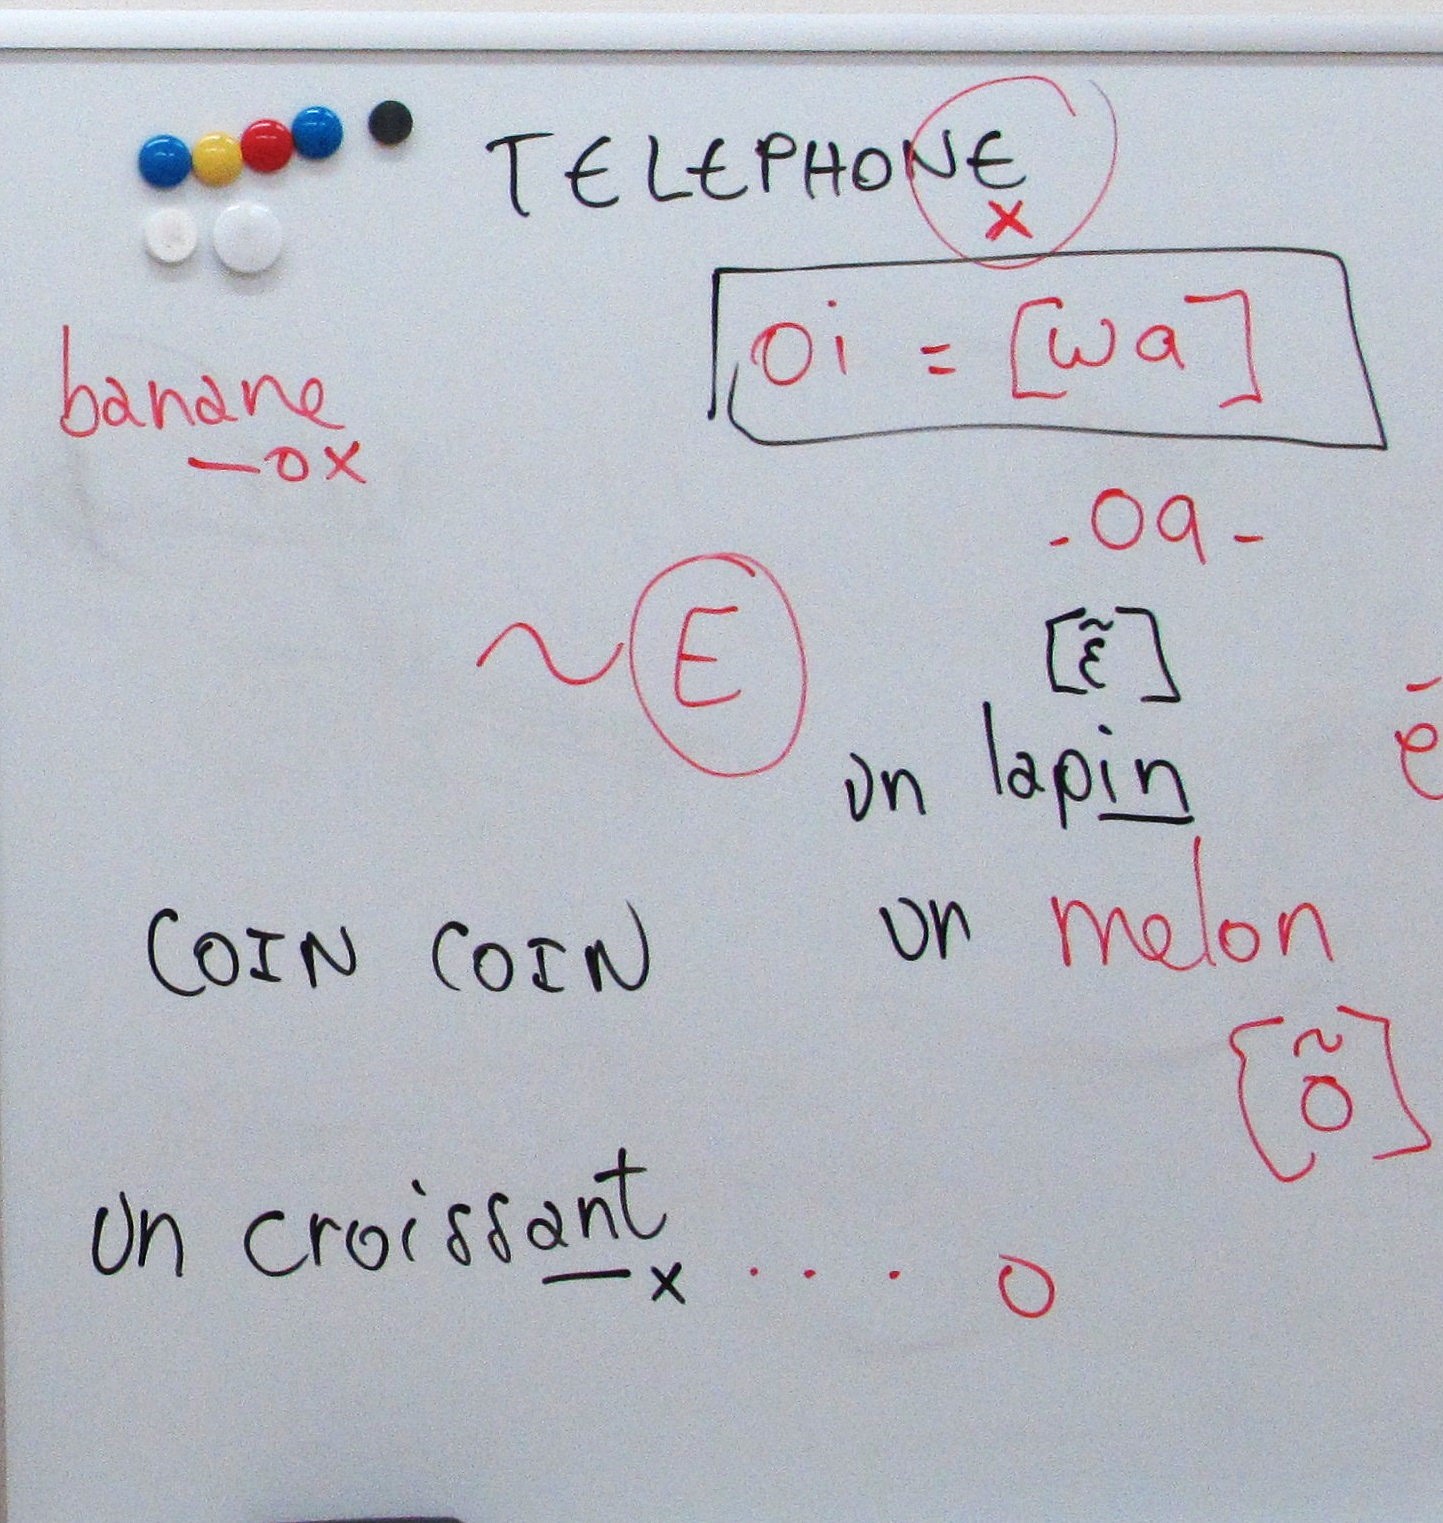 TELEPHONE
x
oi = [wa]
banane
—ox
-oa-
~ E
[ɛ̃]
un lapin
é
un melon
COIN COIN
[õ]
un croissant
— x . . . o